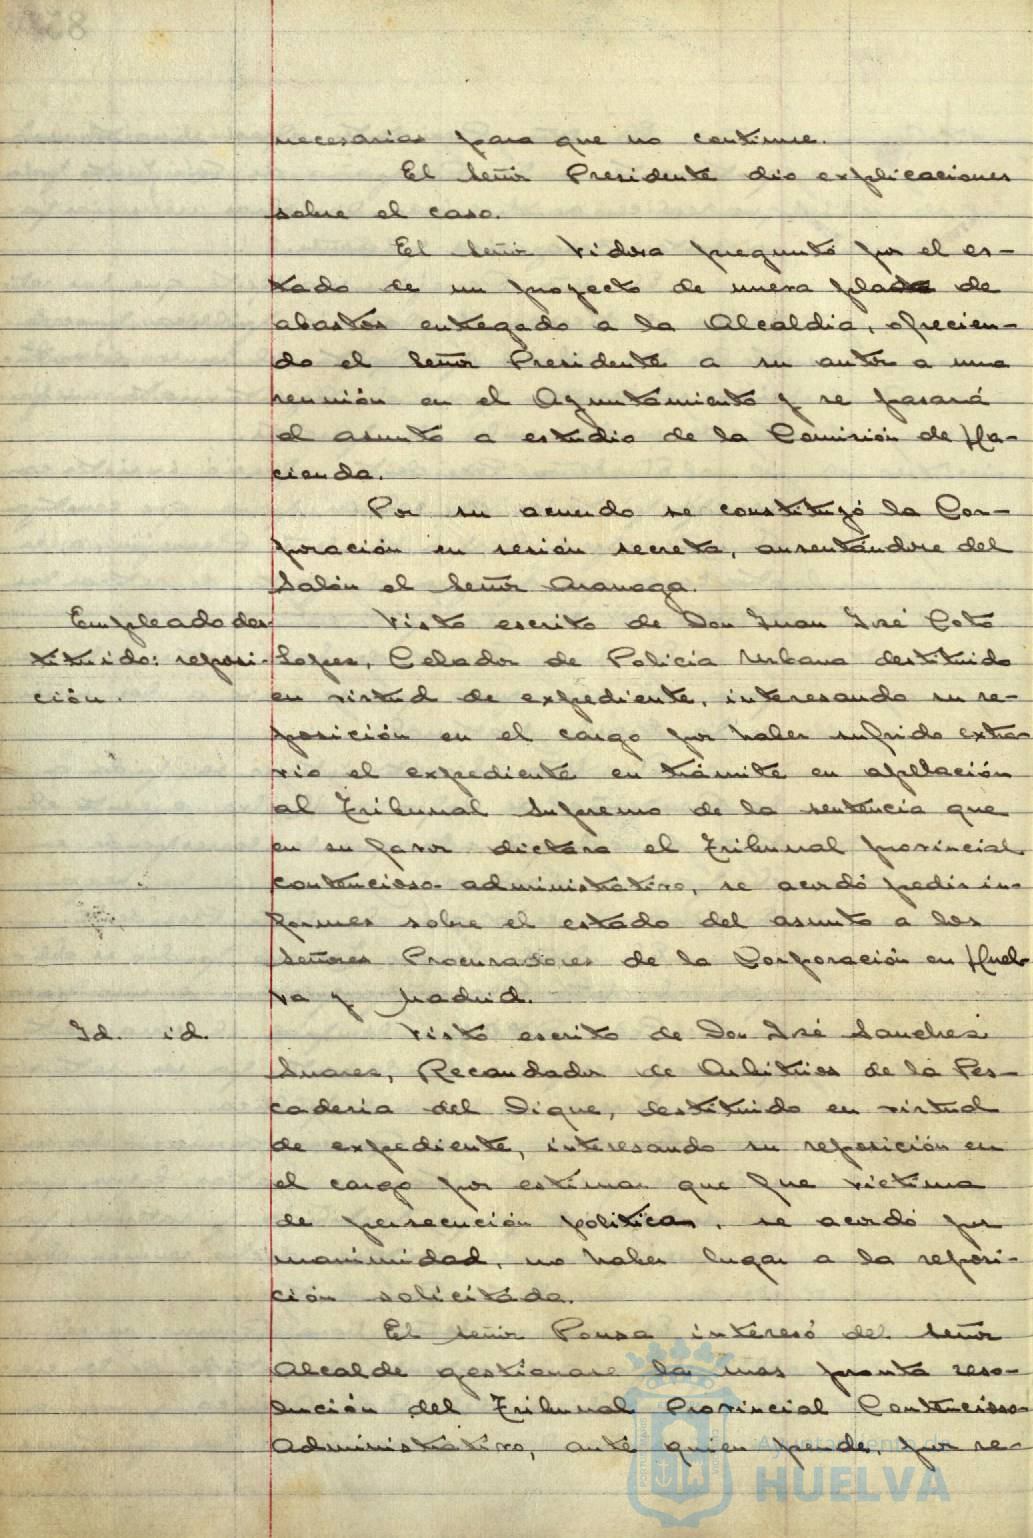 necesarias para que no continue.
El Señor Presidente dio explicaciones
sobre el caso.
El Señor Vidosa preguntó por el es-
tado de un proyecto de nueva plaza de
abastos entregado a la Alcaldia, ofrecien-
do el Señor Presidente a su autor a una
reunión en el Ayuntamiento y se pasará
el asunto a estudio de la Comisión de Ha-
cienda.
Por su acuerdo se constituyó la Cor-
poración en sesión secreta, ausentándose del
Salón el Señor
Empleado des-
tituido: reposi-
ción.
Visto escrito de Don Juan José Coto
Lopez, Celador de Policia Urbana destituido
en virtud de expediente, interesando su re-
posición en el cargo por haber sufrido extra-
vio el expediente en trámite en apelación
al Tribunal Supremo de la sentencia que
en su favor dictara el Tribunal provincial
contencioso-administrativo, se acordó pedir in-
formes sobre el estado del asunto a los
Señores Procuradores de la Corporación en Huel-
va y Madrid.
Id. id.
Visto escrito de Don José Sanchez
Suarez, Recaudador de Arbitrios de la Pes-
caderia del Dique, destituido en virtud
de expediente, interesando su reposición en
el cargo por estimar que fue victima
de persecución politica, se acordó por
unanimidad, no haber lugar a la reposi-
ción solicitada.
El Señor Ponsa interesó del Señor
Alcalde gestionase la mas pronta reso-
lución del Tribunal Provincial Contencioso-
Administrativo, ante quien pende, por re-
Ayuntamiento de
HUELVA